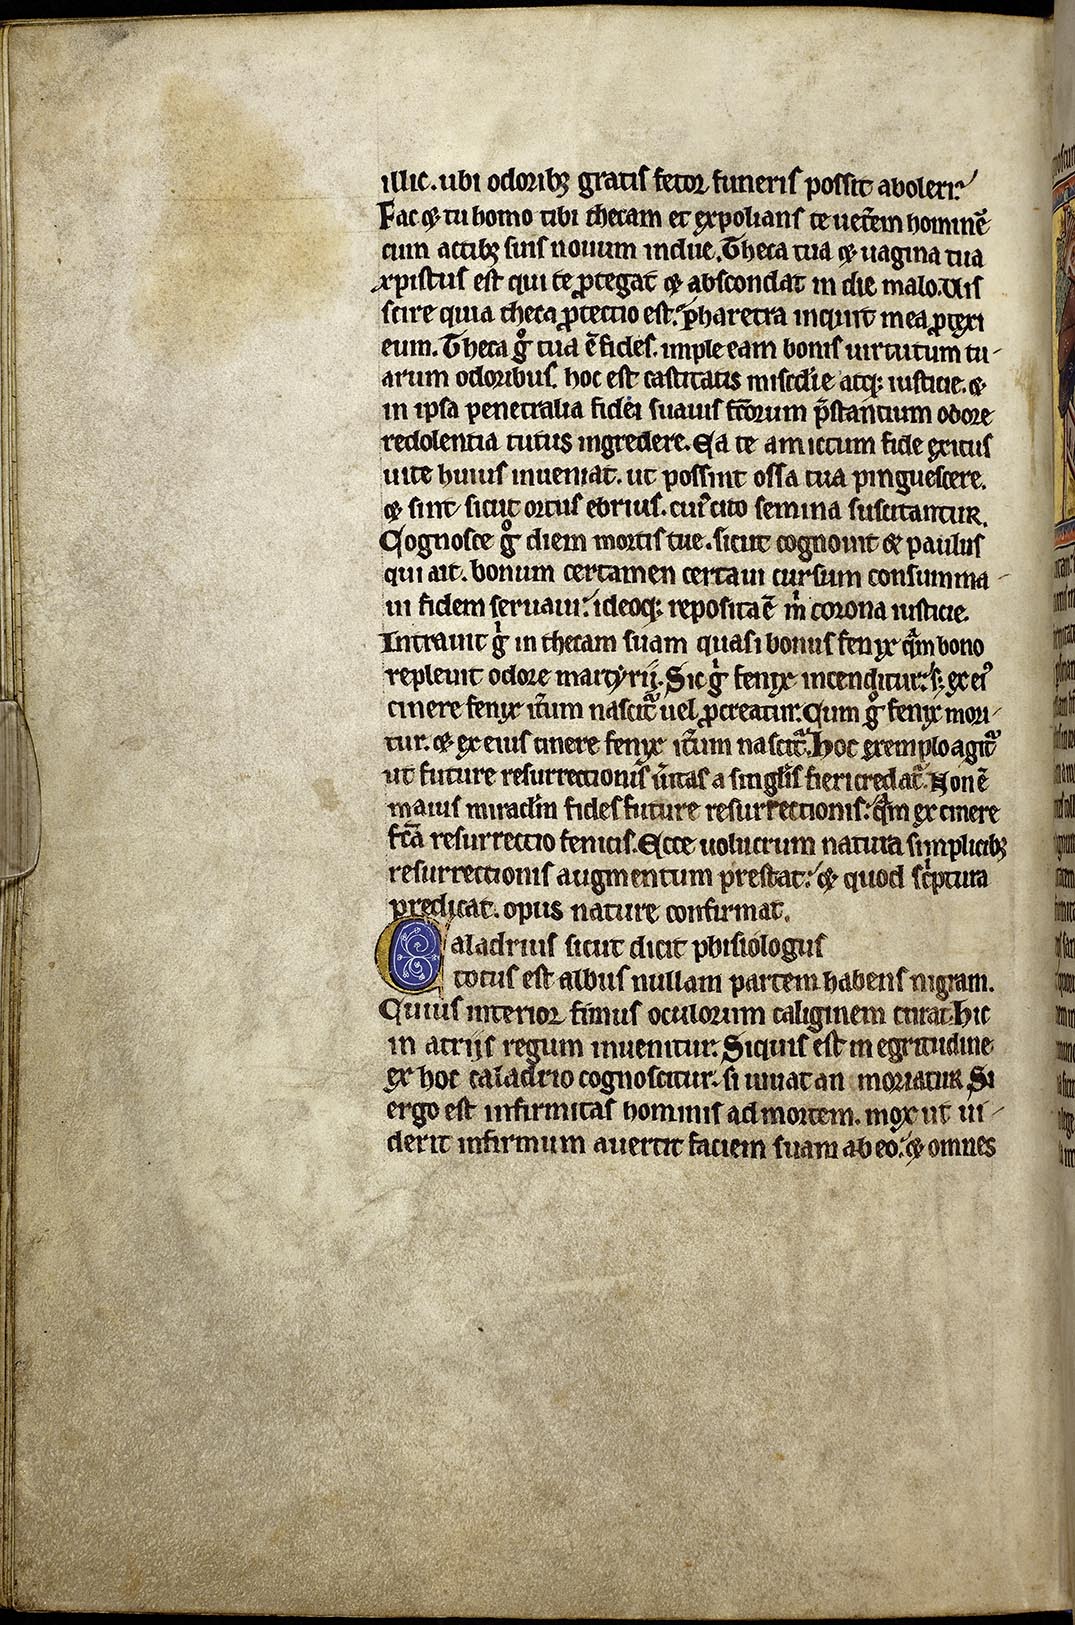 illic. ubi odoribꝫ gratis fetor funeris possit aboleri.
Fac ⁊ tu homo tibi thecam et expolians te ueterem hominē
cum actibꝫ suis nouum indue. Theca tua ⁊ uagina tua
xpistus est qui te ꝓtegat ⁊ abscondat in die malo. Uis
scire quia theca ꝓtectio est. pharetra inquit mea ꝓtexi
eum. Theca gͦ tua ē fides. imple eam bonis uirtutum tu-
arum odoribus. hoc est castitatis miscdīe atqꝫ iusticie. ⁊
in ipsa penetralia fidei suauis fc̄orum p̄stantium odore
redolentia tutus ingredere. Ea te amictum fide exitus
uite huius inueniat. ut possint ossa tua pinguescere.
⁊ sint sicut ortus ebrius. cuiꝰ cito semina suscitantur.
Cognosce gͦ diem mortis tue. sicut cognouit ⁊ paulus
qui ait. bonum certamen certaui cursum consumma-
ui fidem seruaui. ideoqꝫ reposita ē mͥ corona iusticie.
Intrauit gͥ in thecam suam quasi bonus fenix qͣm bono
repleuit odore martyrij. Sic gͥ fenix incenditur. sꝫ ex eiꝰ
cinere fenix itm̄ nascitᷓ uel ꝓcreatur. Cum gͦ fenix mori-
tur. ⁊ ex eius cinere fenix itm̄ nascitᷓ. Hoc exemplo agitᷓ
ut future resurrectionis ūitas a singlis̄ fieri credatᷓ. Non ē
maius miraclm̄ fides future resurrectionis. qͣm ex cinere
fc̄a resurrectio fenicis. Ecce uolucrum natura simplicibꝫ
resurrectionis augmentum prestat. ⁊ quod scͥptura
predicat. opus nature confirmat.
Caladrius sicut dicit phisiologus
totus est albus nullam partem habens nigram.
Cuius interior fimus oculorum caliginem curat. hic
in atrijs regum inuenitur. Siquis est in egritudine
ex hoc caladrio cognoscitur. si uiuat an moriatur. Si
ergo est infirmitas hominis ad mortem. mox ut ui-
derit infirmum auertit faciem suam ab eo. ⁊ omnes